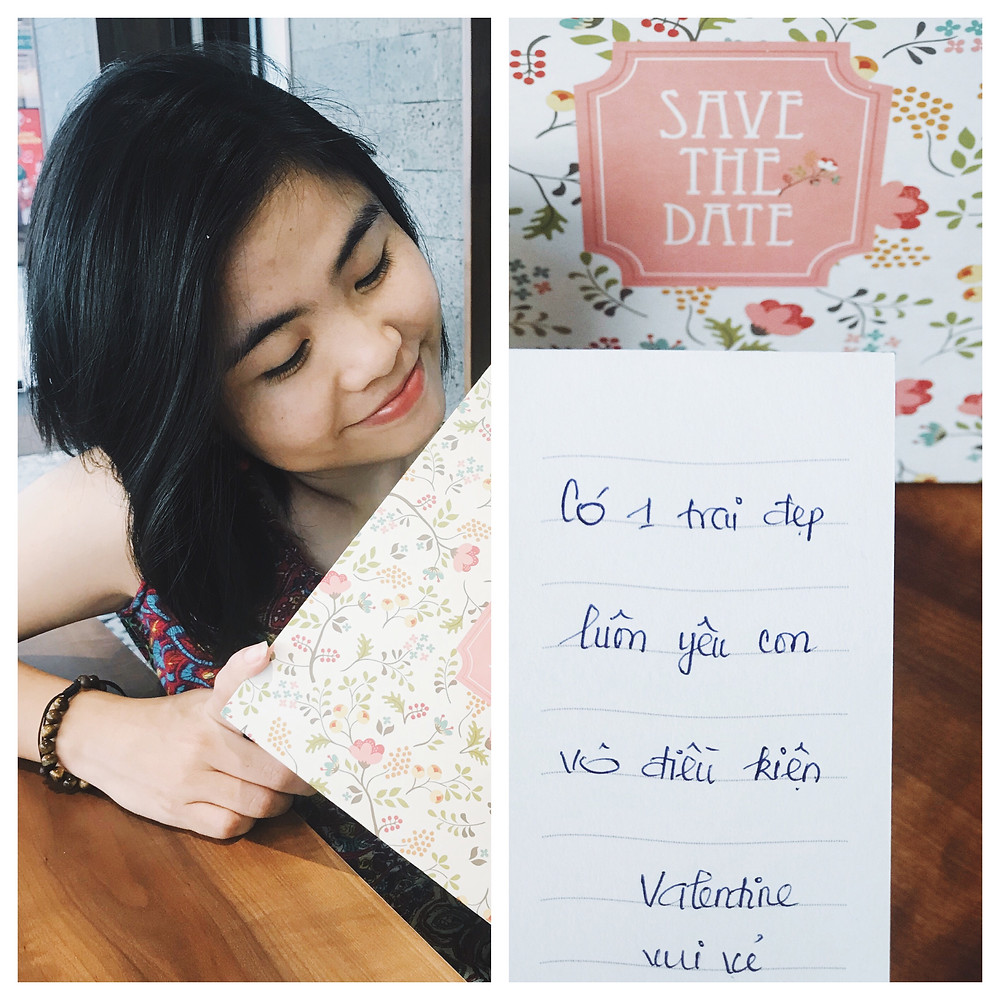 SAVE
THE
DATE
Có 1 trai đẹp
luôn yêu con
vô điều kiện
Valentine
vui vẻ